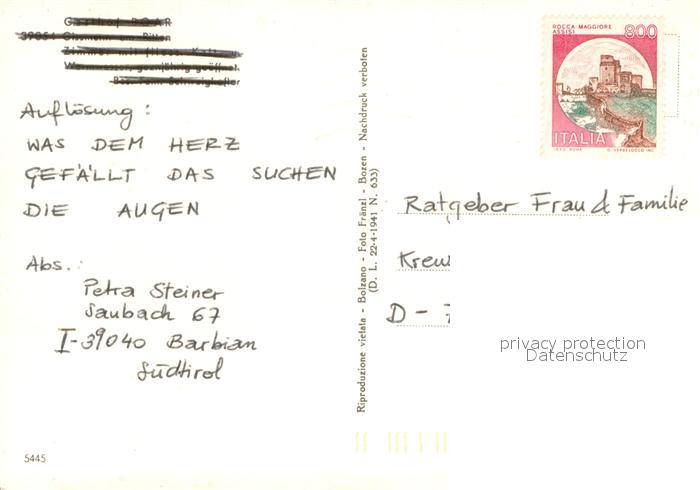 Auflösung :
WAS DEM HERZ
GEFÄLLT DAS SUCHEN
DIE AUGEN
Abs.:
Petra Steiner
Saubach 67
I-39040 Barbian
Südtirol
5445
Riproduzione vietata - Bolzano - Foto Fränzl - Bozen - Nachdruck verboten
(D. L. 22-4-1941 N. 633)
ROCCA MAGGIORE
ASSISI
800
ITALIA
Ratgeber Frau & Familie
D -
privacy protection
Datenschutz